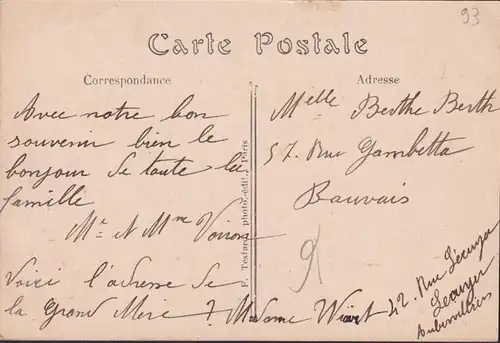 93
Carte Postale
Correspondance
Avec notre bon
souvenir bien le
bonjour de toute la
famille
Mr et Mme
Voici l'adresse de
la Grand Mère Madame Wiart 42 Rue
Aubervilliers
Adresse
Melle Berthe Berth
57 Rue Gambetta
Bauvais
F. Testard, photo.-édit., Paris